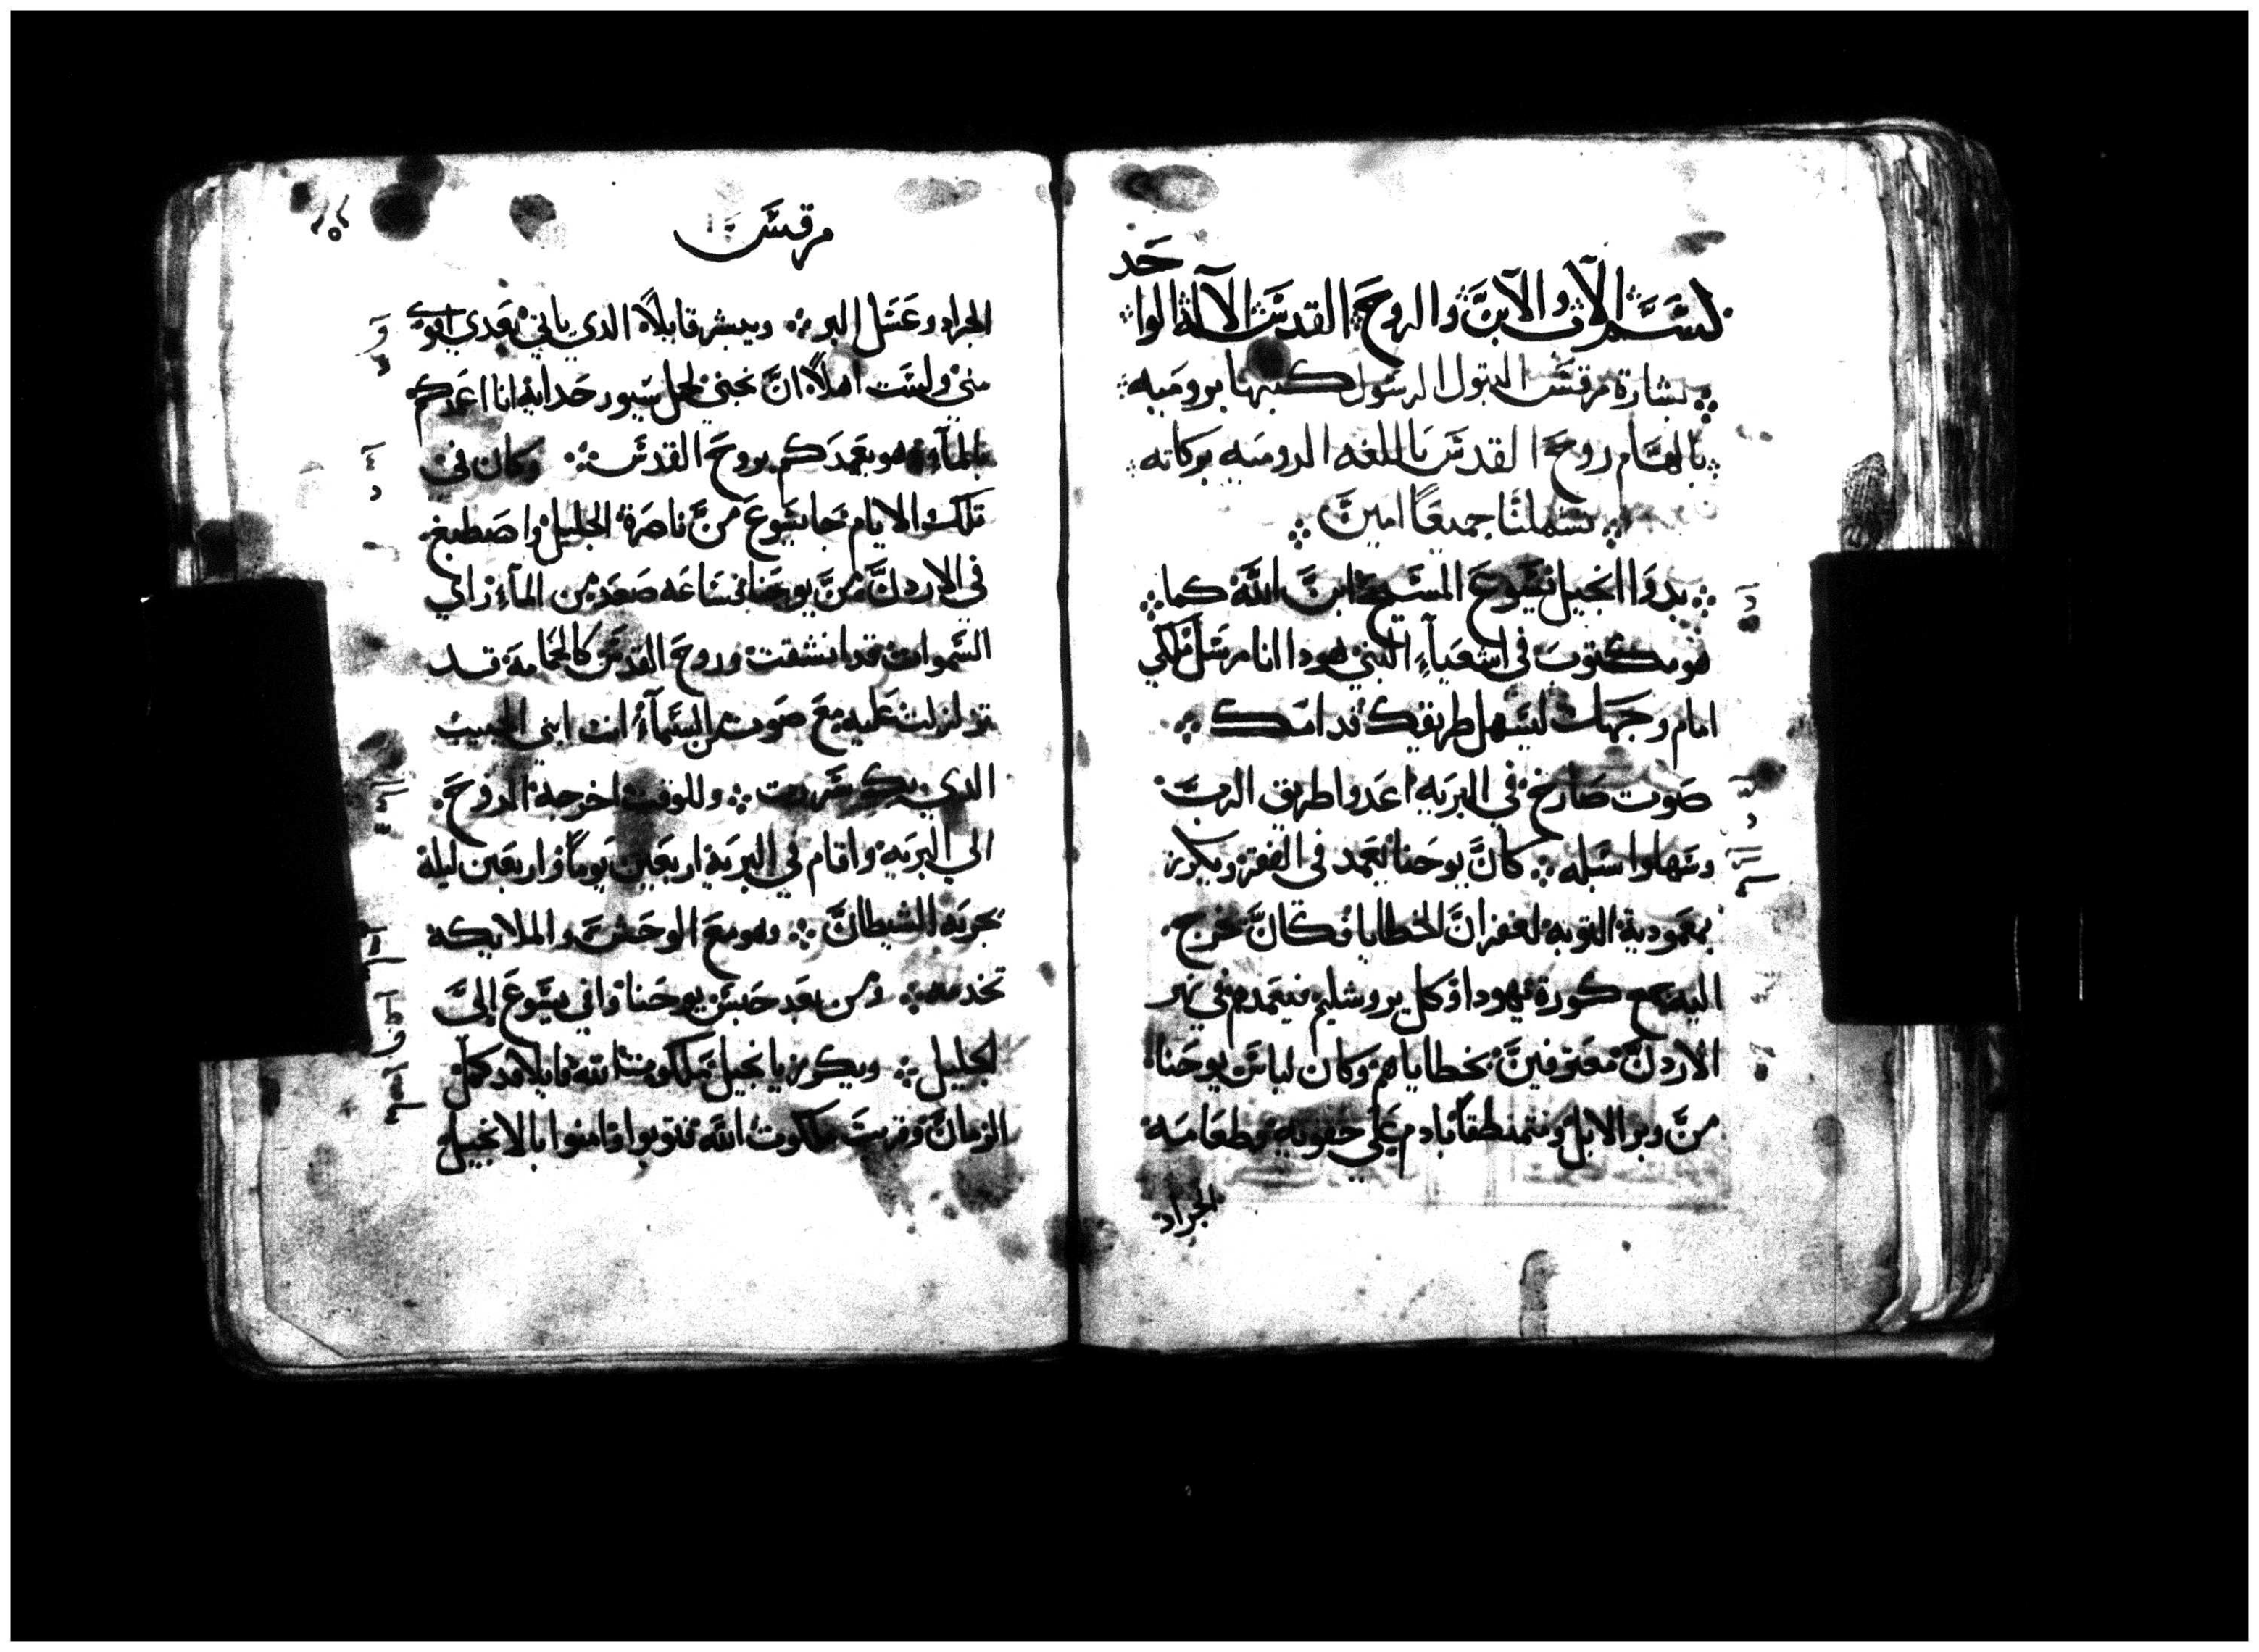 حد
بسم الاب والابن والروح القدس الاله الوا
بشارة مرقس البتول الرسول كتبها برومية
بالهام روح القدس باللغه الروميه بركاته
تشملنا جميعًا امين
بدوا انجيل يسوع المسيح ابن الله كما
هو مكتوب في اشعيآء النبي هودا انا مرسل ملاكي
امام وجهك ليسهل طريقك قدامك
صوت صارخ في البريه اعدوا طريق الرب
وسهلوا سبله كان يوحنا يعمد في القفر ويكرز
بمعمودية التوبه لغفران الخطايا وكان يخرج
اليه جميع كورة يهودا وكل يروشليم فيعمدهم في نهر
الاردن معترفين بخطاياهم وكان لباس يوحنا
من وبر الابل ومتمنطقًا بادم علي حقويه وطعامه
الجراد
مرقس
الجراد وعسل البر ويبشر قايلاً الذي ياتي بعدي اقوي
مني ولست اهلاً ان نجني لحل سيور حدايه انا اعمدكم
بالمآء وهو يعمدكم بروح القدس وكان في
تلك الايام جا يسوع من ناصرة الجليل واصطبغ
في الاردن من يوحنا فساعه صعد من المآء راي
السموات قد انشقت وروح القدس كالحمامة قد
نزلت عليه مع صوت من السمآء انت ابني الحبيب
الذي بك سررت وللوقت اخرجه الروح
الي البريه واقام في البرية اربعين يومًا واربعين ليلة
يجربه الشيطان وهو مع الوحش والملايكه
تخدمه ومن بعد حبس يوحنا وافي يسوع إلى
الجليل ويكرز بانجيل ملكوت الله قايلا قد كمل
الزمان وقربت ملكوت الله فتوبوا وامنوا بالانجيل